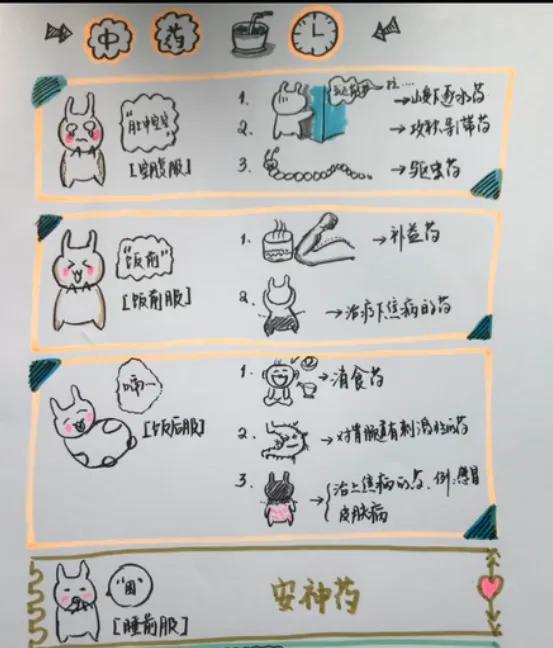 中药
"肚中空空"
[空腹服]
1.
→峻下逐水药
2.
→攻积导滞药
3.
→驱虫药
"饭前"
[饭前服]
1.
→补益药
2.
→治疗下焦病的药
[饭后服]
1.
→消食药
2.
→对胃肠道有刺激性的药
3.
→治上焦病的药、例:感冒
皮肤病
"困"
[睡前服]
安神药